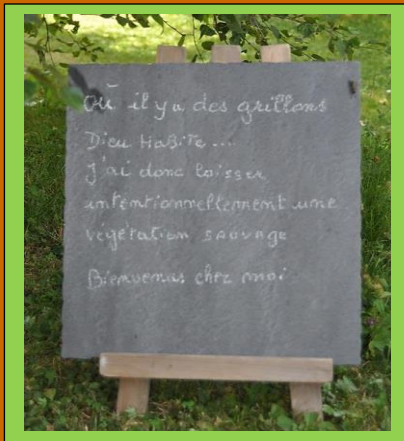 Où il y a des grillons
Dieu Habite...
J'ai donc laisser
intentionnellement une
végétation sauvage
Bienvenus chez moi